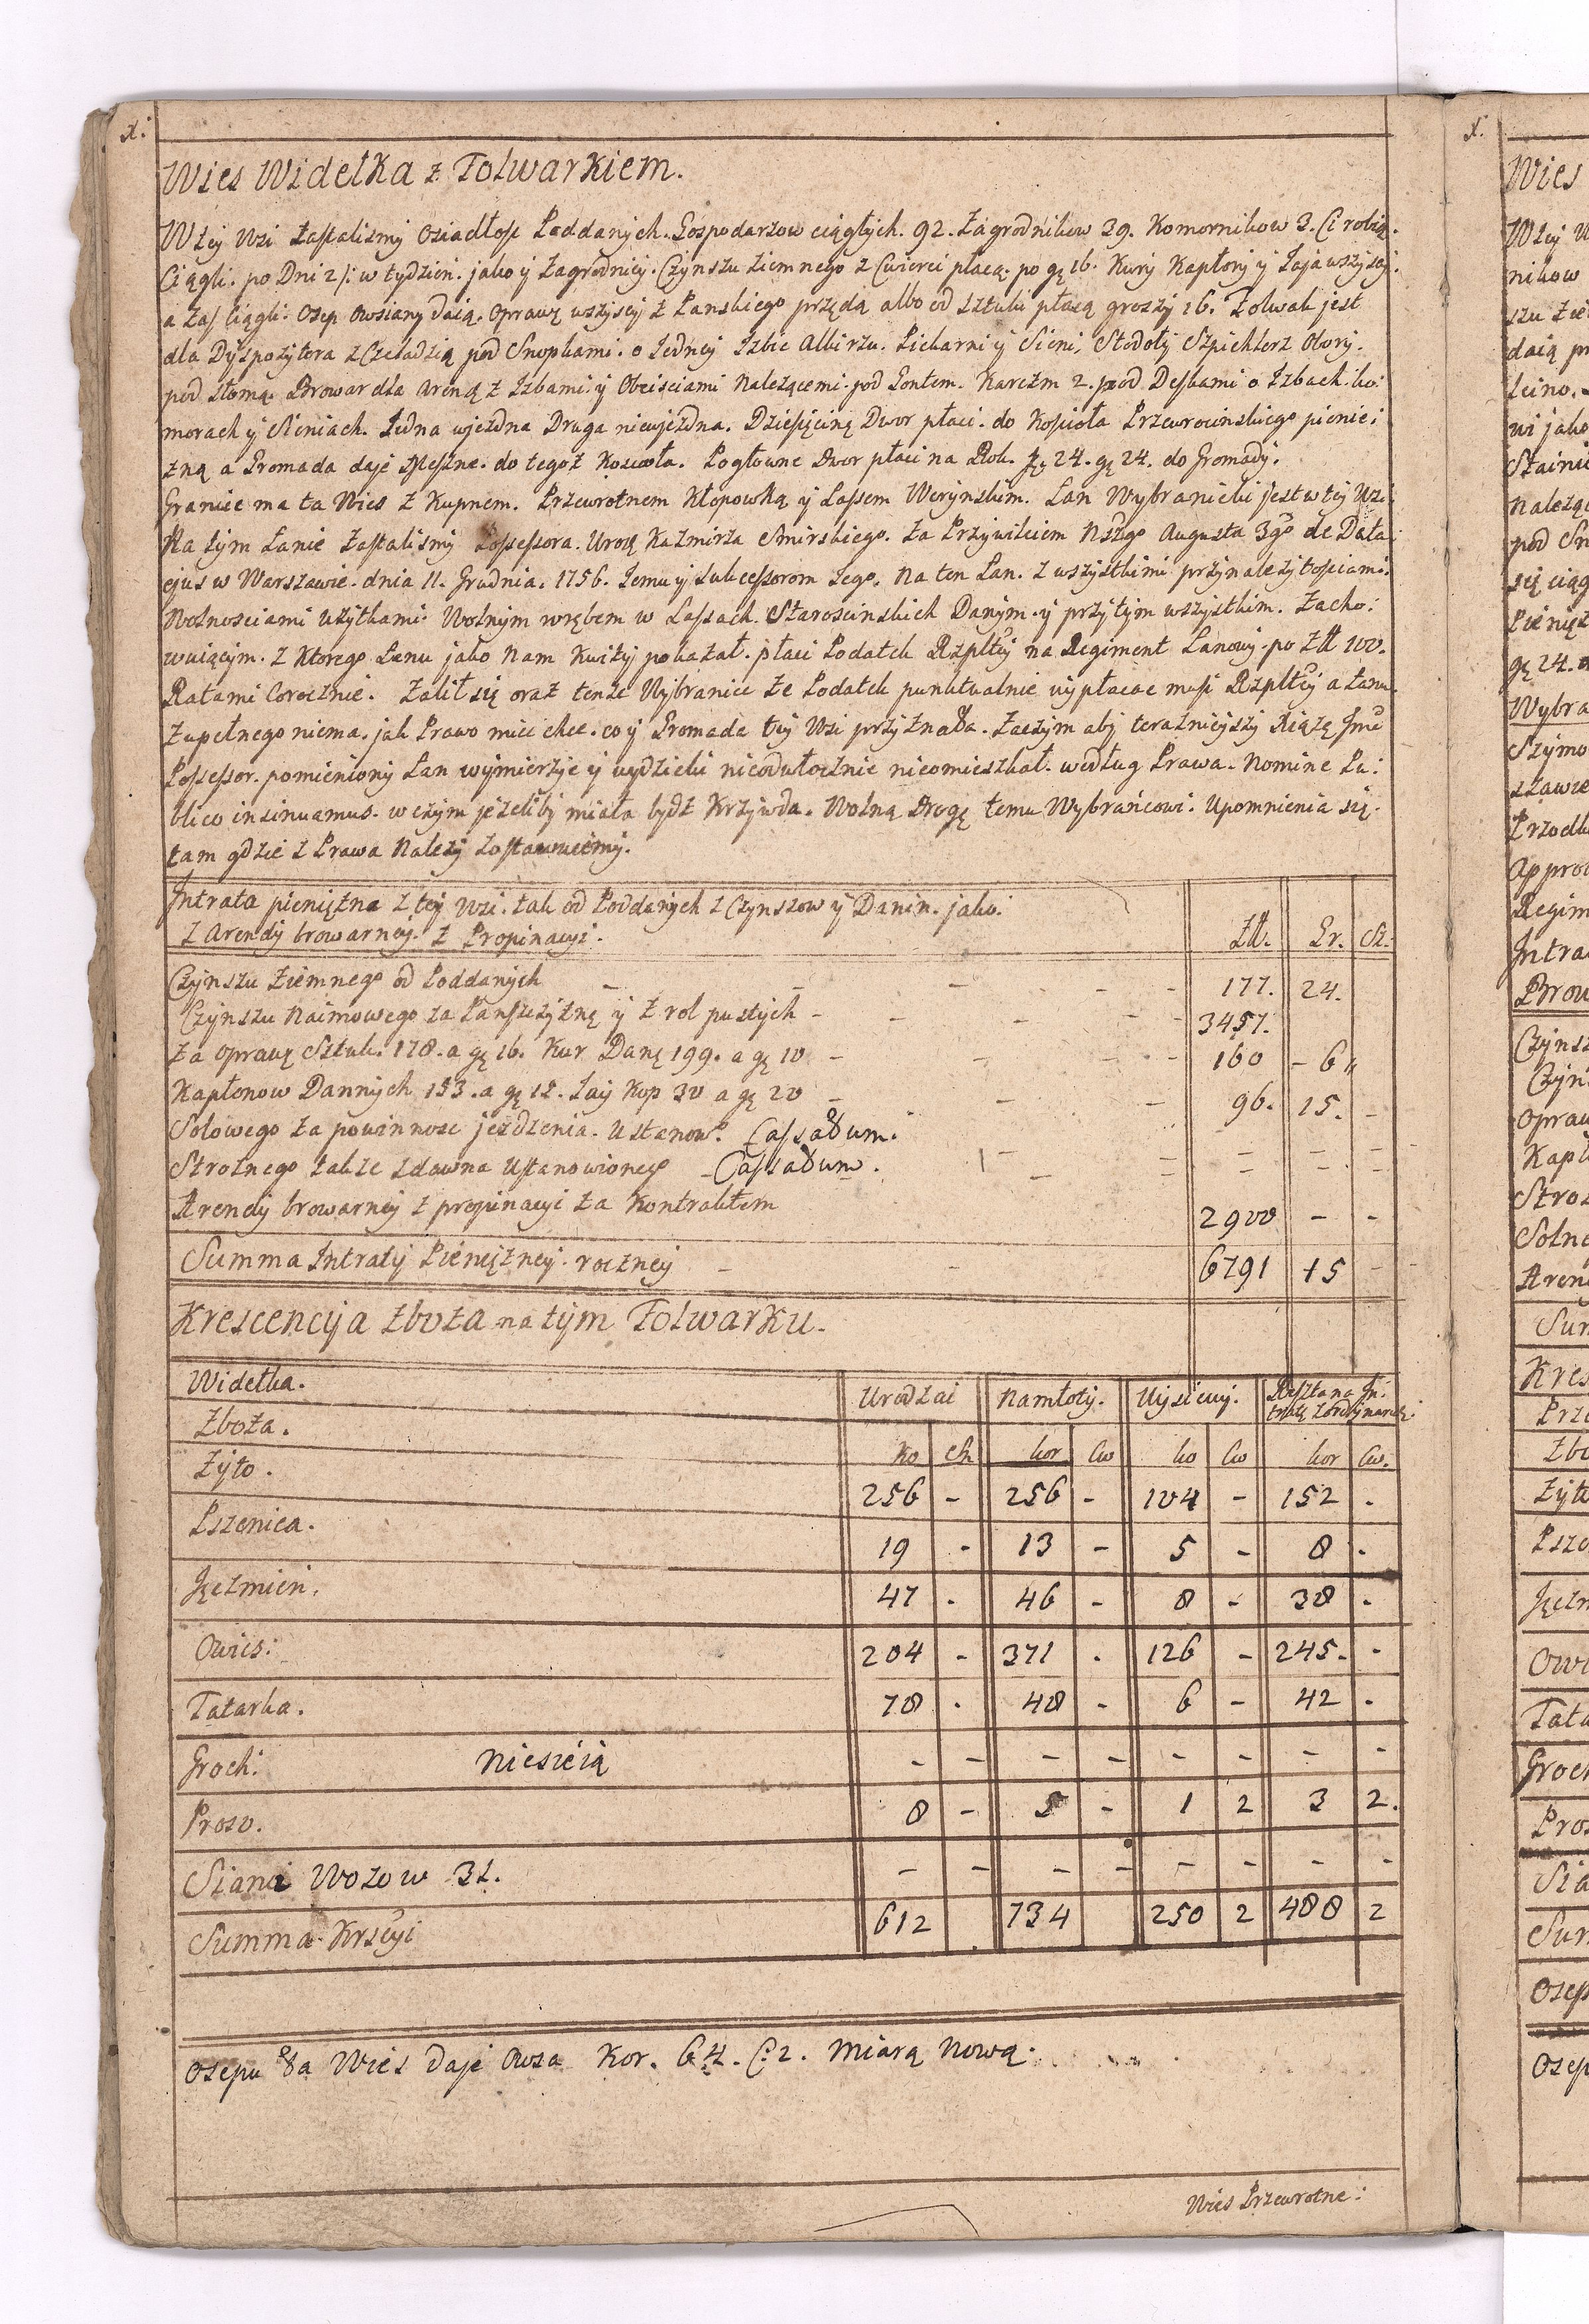 x:
Wies Widełka z Folwarkiem.
W tey Wsi zastalismy Osiadłosc Poddanych. Gospodarzow ciągłych. 92. Zagrodnikow 39. Komornikow 3. Ci robią.
Ciągli. po Dni 2/: w tydzien. jako y Zagrodnicy. Czynszu ziemnego z Cwierci płacą. po gę 16. Kury Kapłony y Jaja wszyscy.
a zas Ciągli. Osep Owsiany daią. Oprawę wszyscy z Panskiego przędą albo od sztuki płacą groszy 16. Folwak jest
dla Dyspozytora z Czeladzią pod Snopkami. o Jedney Izbie Alkirzu. Piekarni y Sieni, Stodoły Szpichlerz Obory.
pod słomą. Browar dla Areną z Izbami y Obeisciami Należącemi. pod Gontem. Karczm 2. pod Deskami o Izbach. ko:
morach y Sieniach. Jedna wjezdna Druga niewjezdna. Dziesięcinę Dwor płaci. do Kosciola Przewrocinskiego pienie:
zną a Gromada daje Meszne. do tegoż Koscioła. Pogłowne Dwor płaci na Rok. zę 24. gę 24. do Gromady.
Granice ma ta Wies z Kupnem. Przewrotnem Kłopowką y Lassem Werynskim. Lan Wybraniecki jest w tej Wsi
Na tym Lanie zastalismy Possessora. Uroę Kazmirza Smirskiego. Za Przywileiem Nszgo Augusta 3go de Data
ejus w Warszawie. dnia 11. Grudnia. 1756. Jemu y sukcessorom Jego. Na ten Lan. z wszystkimi przynależytosciami.
Wolnosciami Użytkami. Wolnym wrębem w Lassach Staroscinskich Danym. y przytym wszystkim. Zacho:
wuiącym. z Ktorego Lanu jako Nam Kwity pokazał. płaci Podatek Rzpltey na Regiment Lanowy. po Zlt 100.
Ratami Corocznie. Zalił się oraz tenże Wybraniec że Podatek punktualnie wypłacac musi Rzpltey a Lanu
zupełnego niema. jak Prawo miec chce. co y Gromada tey Wsi przyznała. Zaczym aby teraznieyszy Xiążę Jmć
Possessor. pomieniony Lan wymierzyć y wydzielić nieodwłocznie nieomieszkał. według Prawa. Nomine Pu:
blico insinuamus. w czym jeżeliby miała bydz Krzywda. Wolną Drogę temu Wybrańcowi. Upomnienia się
tam gdzie z Prawa Należy zostawuiemy.
Intrata pieniężna z tey Wsi. tak od Poddanych z Czynszow y Danin. jako.
z Arendy browarney. z Propinacyi. Zlt. Gr. Sz.
Czynszu Ziemnego od Poddanych 177. 24.
Czynszu Naimowego za Panszczyznę y z rol pustych 3457.
Za oprawę Sztuk. 178. a gę 16. Kur Danę 199. a gę 10 160 - 6
Kapłonow Dannych 153. a gę 12. Jaj Kop 30 a gę 20 96. 15.
Solowego za powinnosc jezdzenia. Ustanow. Cassatum.
Stroznego także zdawna Ustanowionego Cassatum.
Arendy browarney z propinacyi za Kontraktem 2900 - -
Summa Intraty Pienięzney. roczney 6791 15
Krescencyja zboża na tym Folwarku.
Widełka. Urodzai Namłoty. Wysiewy. Reszta na In: tratę z ordynaryi.
Zboża. ko Ch kor Cw ko Cw kor Cw.
Zyto. 256 - 256 - 104 - 152 -
Pszenica. 19 - 13 - 5 - 8 -
Jęczmien. 47 - 46 - 8 - 38 -
Owies: 204 - 371 - 126 - 245. -
Tatarka. 78 - 48 - 6 - 42 -
Groch: Niesieią - - - - - - - -
Proso. 8 - 5 - 1 2 3 2.
Siana Wozow 32. - - - - - - - -
Summa Krscyi 612 734 250 2 488 2
Osepu ta Wies daje Owsa Kor. 64. C. 2. Miarą Nową.
Wies Przewrotne:
x.
Wies